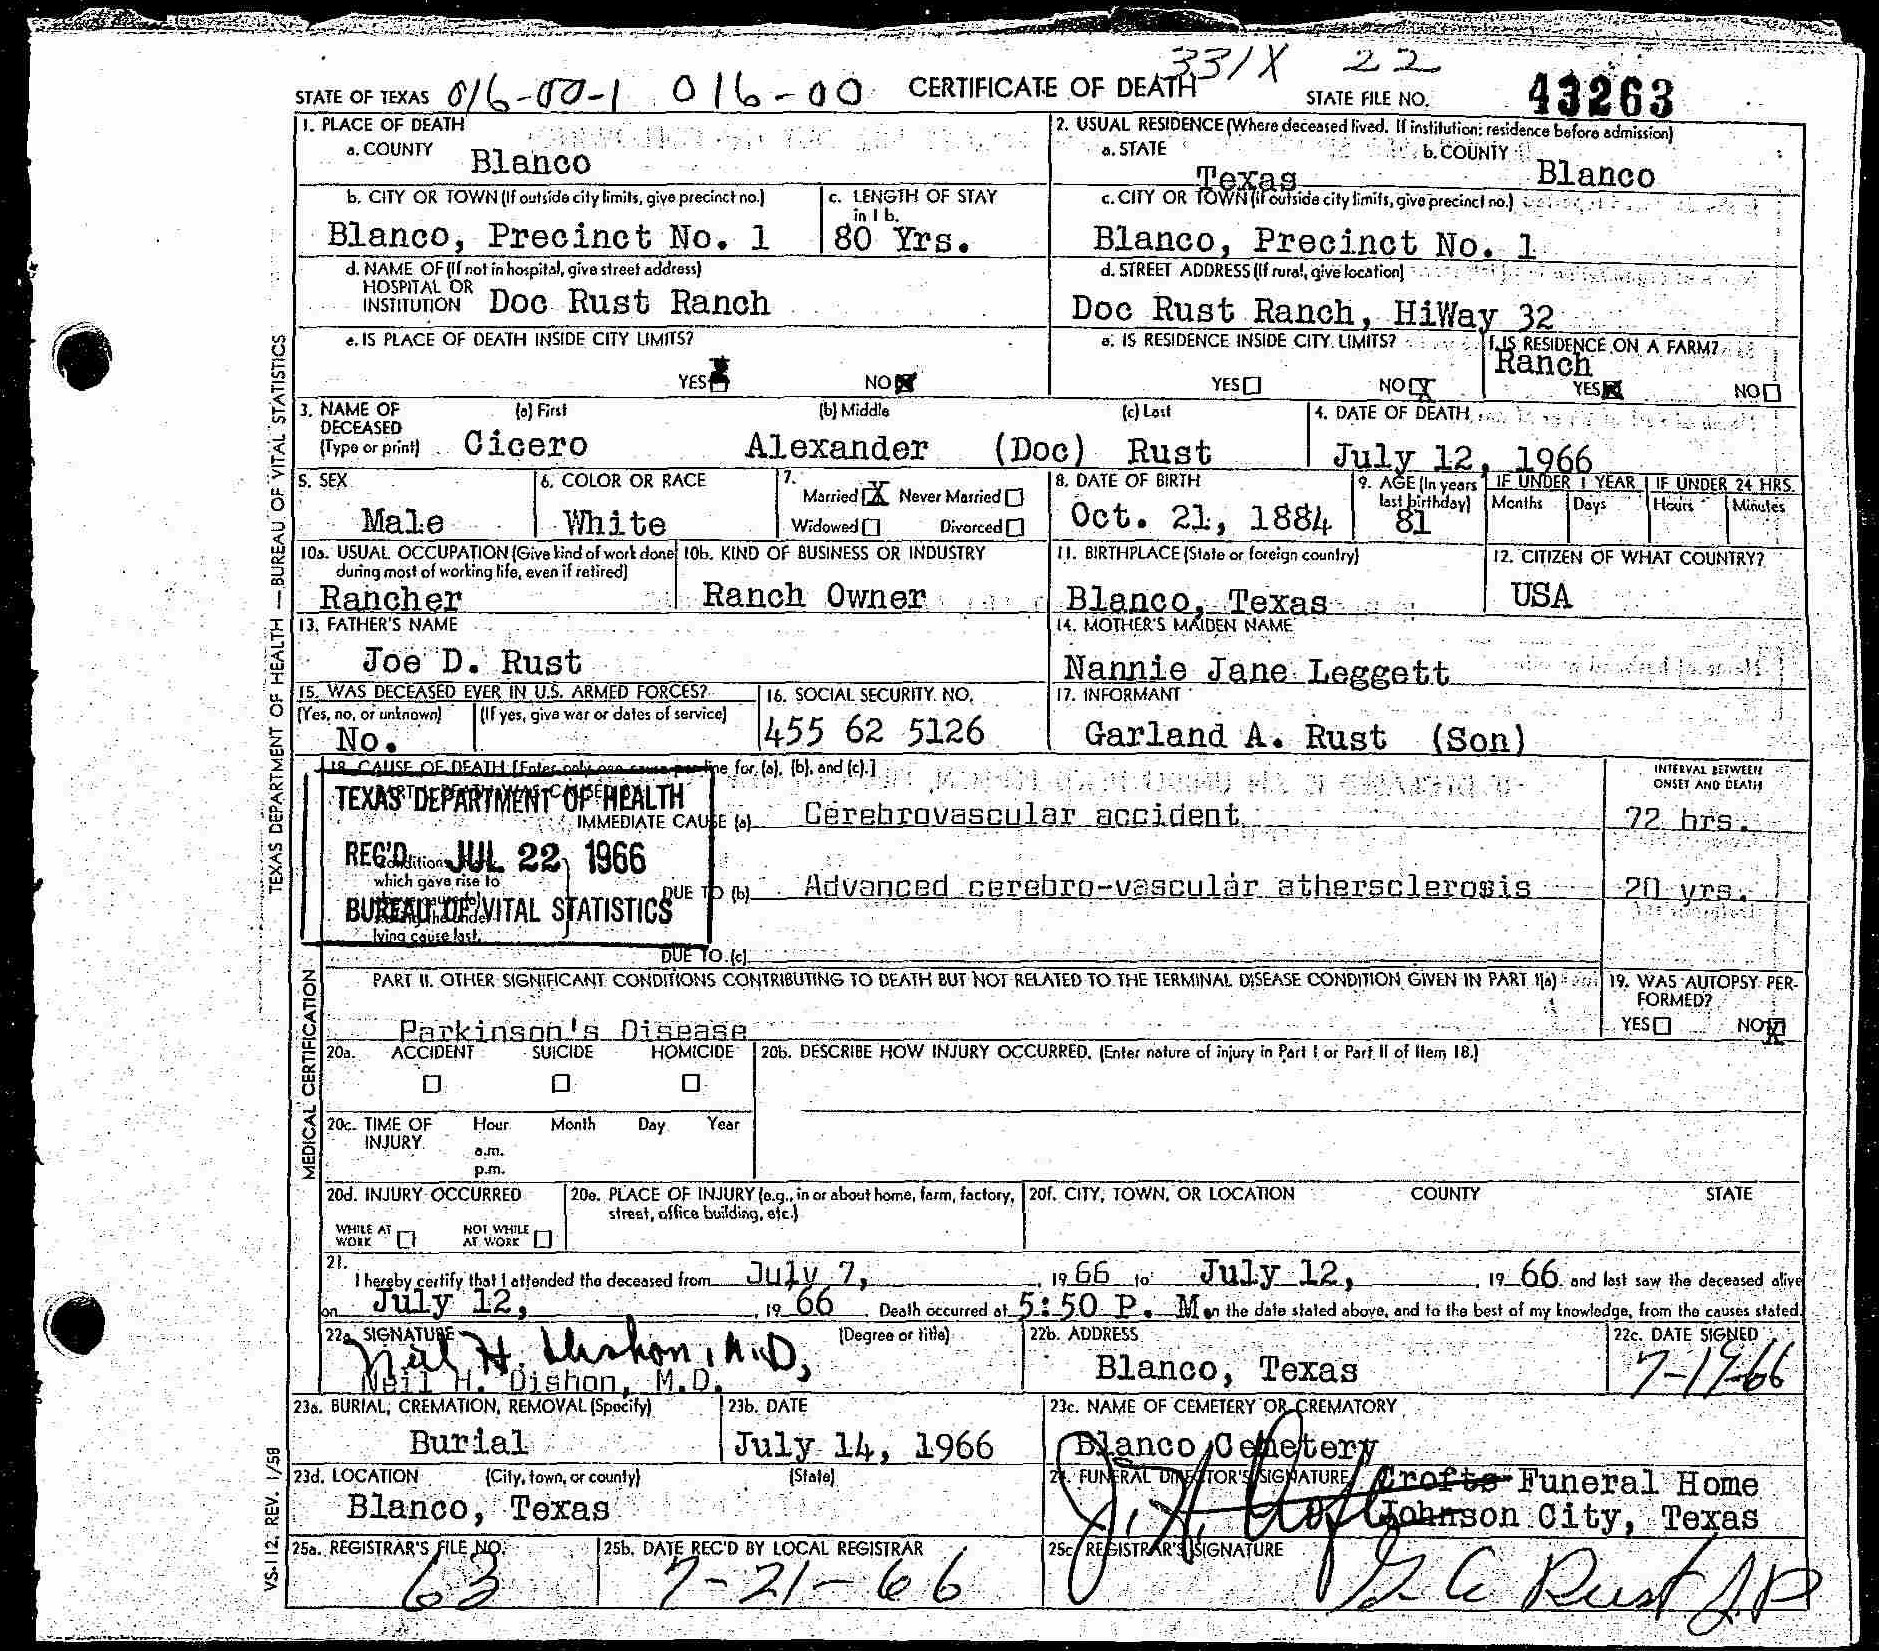 331X 22
STATE OF TEXAS 016-00-1 016-00 CERTIFICATE OF DEATH STATE FILE NO. 43263
1. PLACE OF DEATH
a. COUNTY Blanco
2. USUAL RESIDENCE (Where deceased lived. If institution: residence before admission)
a. STATE Texas b. COUNTY Blanco
b. CITY OR TOWN (If outside city limits, give precinct no.) Blanco, Precinct No. 1
c. LENGTH OF STAY in 1 b. 80 Yrs.
c. CITY OR TOWN (If outside city limits, give precinct no.) Blanco, Precinct No. 1
d. NAME OF (If not in hospital, give street address) HOSPITAL OR INSTITUTION Doc Rust Ranch
d. STREET ADDRESS (If rural, give location) Doc Rust Ranch, HiWay 32
e. IS PLACE OF DEATH INSIDE CITY LIMITS? YES NO
e. IS RESIDENCE INSIDE CITY LIMITS? YES NO X
f. IS RESIDENCE ON A FARM? Ranch YES X NO
3. NAME OF DECEASED (Type or print) (a) First Cicero (b) Middle Alexander (Doc) (c) Last Rust
4. DATE OF DEATH July 12, 1966
5. SEX Male
6. COLOR OR RACE White
7. Married X Never Married Widowed Divorced
8. DATE OF BIRTH Oct. 21, 1884
9. AGE (In years last birthday) 81
IF UNDER 1 YEAR Months Days
IF UNDER 24 HRS. Hours Minutes
10a. USUAL OCCUPATION (Give kind of work done during most of working life, even if retired) Rancher
10b. KIND OF BUSINESS OR INDUSTRY Ranch Owner
11. BIRTHPLACE (State or foreign country) Blanco, Texas
12. CITIZEN OF WHAT COUNTRY? USA
13. FATHER'S NAME Joe D. Rust
14. MOTHER'S MAIDEN NAME Nannie Jane Leggett
15. WAS DECEASED EVER IN U.S. ARMED FORCES? (Yes, no, or unknown) No. (If yes, give war or dates of service)
16. SOCIAL SECURITY NO. 455 62 5126
17. INFORMANT Garland A. Rust (Son)
18. CAUSE OF DEATH [Enter only one cause per line for (a), (b), and (c).]
INTERVAL BETWEEN ONSET AND DEATH
TEXAS DEPARTMENT OF HEALTH
REC'D JUL 22 1966
BUREAU OF VITAL STATISTICS
IMMEDIATE CAUSE (a) Cerebrovascular accident 72 hrs.
which gave rise to
DUE TO (b) Advanced cerebro-vascular athersclerosis 20 yrs.
lying cause last.
DUE TO (c)
PART II. OTHER SIGNIFICANT CONDITIONS CONTRIBUTING TO DEATH BUT NOT RELATED TO THE TERMINAL DISEASE CONDITION GIVEN IN PART I(a)
Parkinson's Disease
19. WAS AUTOPSY PERFORMED? YES NO X
20a. ACCIDENT SUICIDE HOMICIDE
20b. DESCRIBE HOW INJURY OCCURRED. (Enter nature of injury in Part I or Part II of Item 18.)
20c. TIME OF INJURY Hour Month Day Year
a.m.
p.m.
20d. INJURY OCCURRED WHILE AT WORK NOT WHILE AT WORK
20e. PLACE OF INJURY (e.g., in or about home, farm, factory, street, office building, etc.)
20f. CITY, TOWN, OR LOCATION COUNTY STATE
21. I hereby certify that I attended the deceased from July 7, 19 66 to July 12, 19 66 and last saw the deceased alive
on July 12, 19 66 Death occurred at 5:50 P. M on the date stated above, and to the best of my knowledge, from the causes stated.
22a. SIGNATURE (Degree or title) Neil H. Dishon, M.D.
Neil H. Dishon, M.D.
22b. ADDRESS Blanco, Texas
22c. DATE SIGNED 7-19-66
23a. BURIAL, CREMATION, REMOVAL (Specify) Burial
23b. DATE July 14, 1966
23c. NAME OF CEMETERY OR CREMATORY Blanco Cemetery
23d. LOCATION (City, town, or county) (State) Blanco, Texas
24. FUNERAL DIRECTOR'S SIGNATURE Crofts Funeral Home
Johnson City, Texas
25a. REGISTRAR'S FILE NO. 63
25b. DATE REC'D BY LOCAL REGISTRAR 7-21-66
25c. REGISTRAR'S SIGNATURE Rust J P
TEXAS DEPARTMENT OF HEALTH — BUREAU OF VITAL STATISTICS
MEDICAL CERTIFICATION
VS-112, REV. 1/58